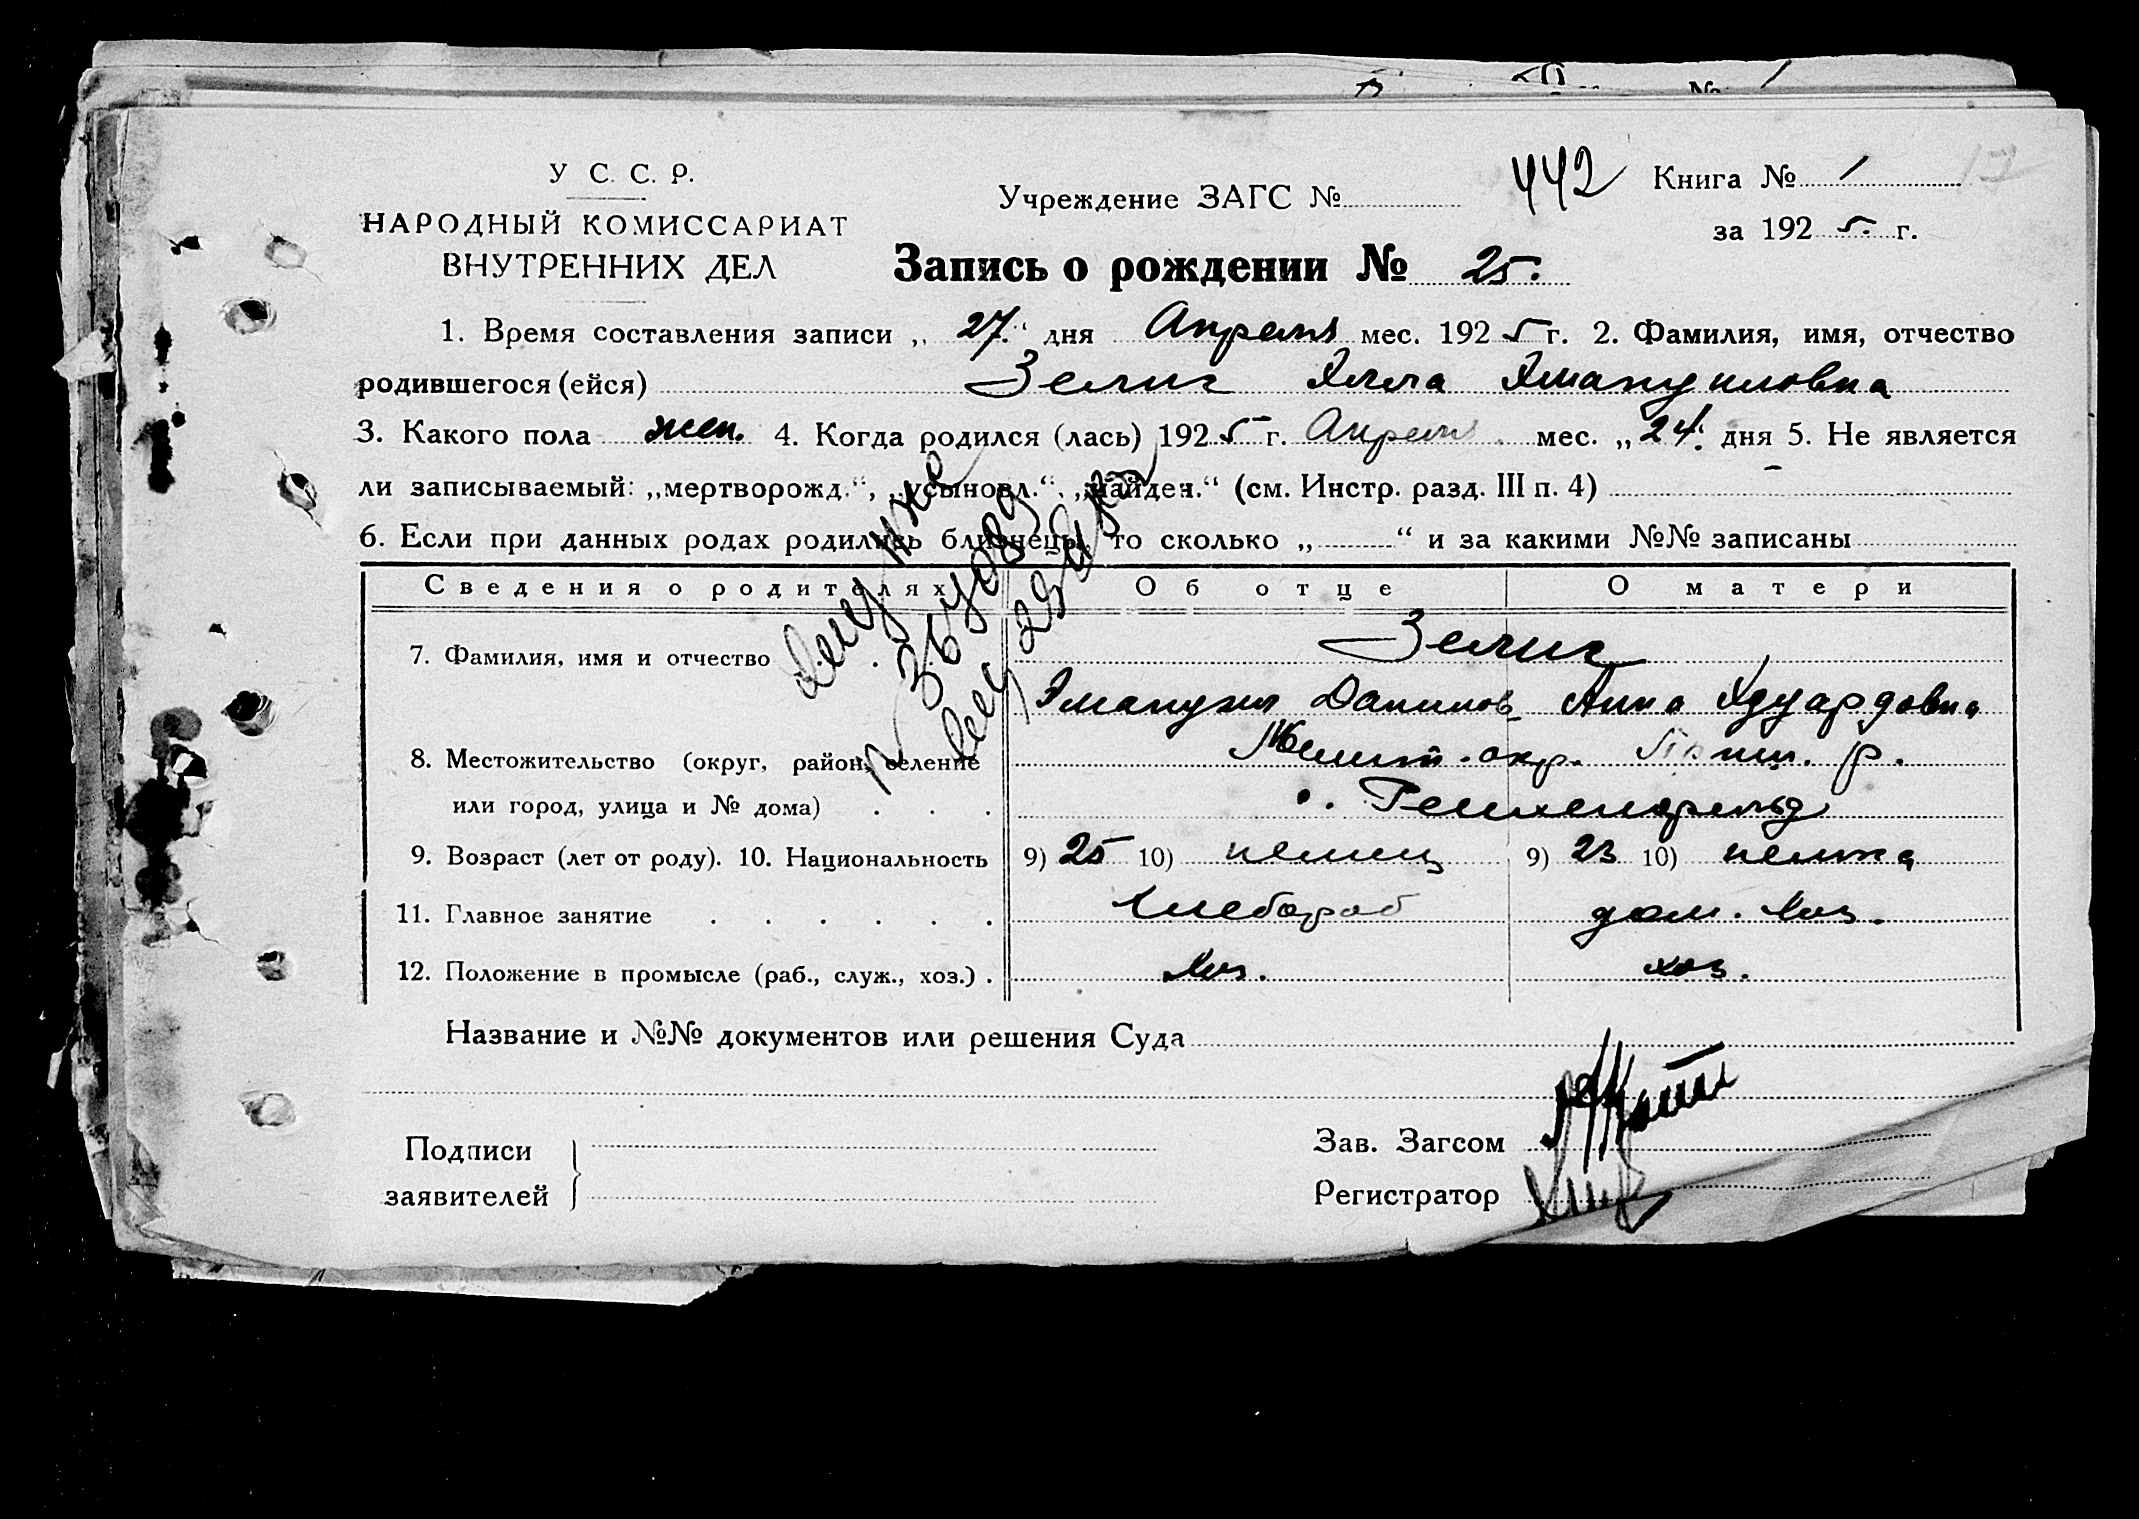 У С. С. Р.
НАРОДНЫЙ КОМИССАРИАТ
ВНУТРЕННИХ ДЕЛ
Учреждение ЗАГС №
442
Книга № 1
за 1925 г.
Запись о рождении № 25.
1. Время составления записи „ 27. “ дня Апреля мес. 1925 г. 2. Фамилия, имя, отчество
родившегося (ейся) Зелиг Элла Эмануиловна
3. Какого пола жен. 4. Когда родился (лась) 1925 г. Апреля мес. „24. дня 5. Не является
ли записываемый: „мертворожд.“, „усыновл.“, „найден.“ (см. Инстр. разд. III п. 4) –
6. Если при данных родах родились близнецы, то сколько „ “ и за какими №№ записаны
Сведения о родителях Об отце О матери
7. Фамилия, имя и отчество Зелиг
Эмануил Данилов Анна Эдуардовна
8. Местожительство (округ, район, селение Мелит. окр. Приш. р.
или город, улица и № дома) Рейхенфельд
9. Возраст (лет от роду). 10. Национальность 9) 25 10) немец 9) 23 10) немка
11. Главное занятие хлебороб дом. хоз.
12. Положение в промысле (раб., служ., хоз.) хоз. хоз.
Название и №№ документов или решения Суда
Подписи
заявителей
Зав. Загсом
Регистратор